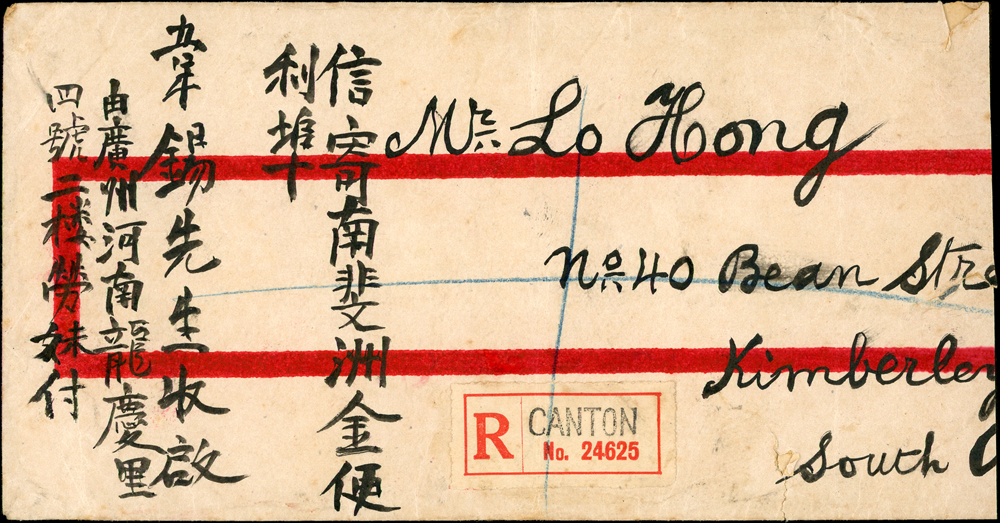 信寄南斐洲金便
利埠
錫先生收啟
由廣州河南龍慶里
四號二楼勞妹付
Mr. Lo Hong
No. 40 Bean Stre
Kimberley
South
R CANTON
No. 24625